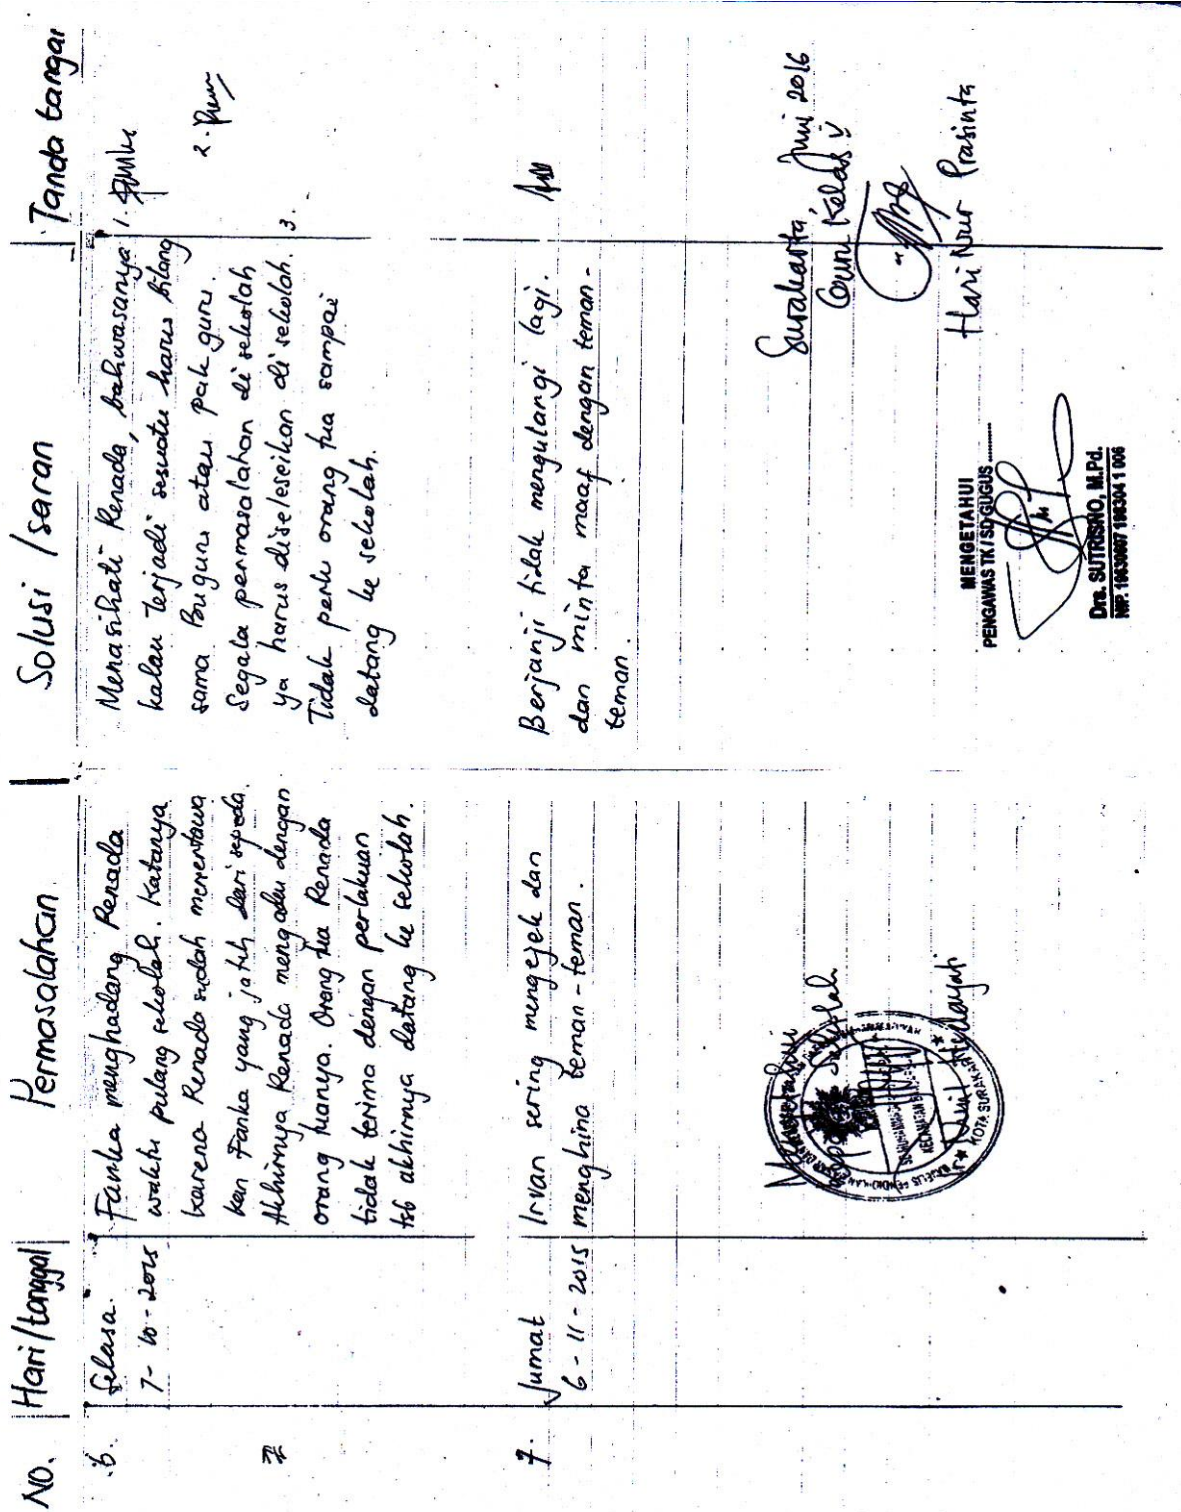 No. Hari/tanggal Permasalahan Solusi / saran Tanda tangan
6. Selasa.
7-10-2015
Fanka menghadang Renada
waktu pulang sekolah. Katanya
karena Renada sudah menertawa
kan Fanka yang jatuh dari sepeda.
Akhirnya Renada mengadu dengan
orang tuanya. Orang tua Renada
tidak terima dengan perlakuan
tsb akhirnya datang ke sekolah.
Menasihati Renada, bahwasanya
kalau terjadi sesuatu harus bilang
sama Bu guru atau pak guru.
Segala permasalahan di sekolah
ya harus diseleseikan di sekolah.
Tidak perlu orang tua sampai
datang ke sekolah.
1.
2.
3.
7. Jumat
6-11-2015
Irvan sering mengejek dan
menghina teman-teman.
Berjanji tidak mengulangi lagi.
dan minta maaf dengan teman-
teman.
Mengetahui
Kepala Sekolah
MAJELIS PENDIDIKAN DASAR DAN
KOTA SURAKARTA
Hidayati
MENGETAHUI
PENGAWAS TK / SD GUGUS
Drs. SUTRISNO, M.Pd.
NIP. 19630607 198304 1 006
Surakarta, Juni 2016
Guru Kelas V
Hari Nur Prasinta